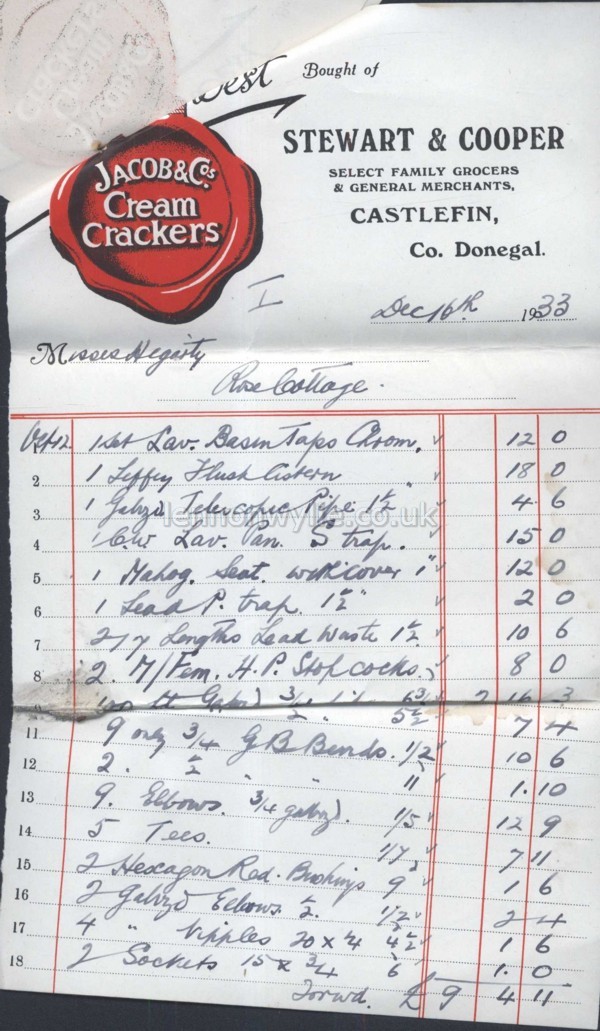 Best
Bought of
JACOB & Cos
Cream
Crackers
STEWART & COOPER
SELECT FAMILY GROCERS
& GENERAL MERCHANTS,
CASTLEFIN,
Co. Donegal.
I
Dec 16th 1933
Misses Hegarty
Rose Cottage.
1 Set Lav. Basin Taps Chrom. 12 0
2 1 Leffey Flush Cistern 18 0
3 1 Galvzd Telescopic Pipe 1½" 4 6
lennonwylie.co.uk
4 1 C.W Lav. Pan. S trap. 15 0
5 1 Mahog. Seat. with cover 1" 12 0
6 1 Lead P. trap. 1½" 2 0
7 Lengths Lead Waste 1½ 10 6
8 2. M/Fem. H.P. Stopcocks. 8 0
¾ 6¾ 2 16 3
½ 5½ 7 4
11 9 only ¾ G B Bends. 1/2 10 6
12 2. ½ " " 11 1. 10
13 9. Elbows. ¾ galvzd. 1/5 12 9
14 5 Tees. 1/7 7 11
15 2 Hexagon Red. Bushings 9 1 6
16 2 Galvzd Elbows ½. 1/2 2 4
17 4 " Nipples 20 x ¼ 4½ 1 6
18 2 Sockets 15 x ¾ 6 1. 0
Forwd. £9 4 11